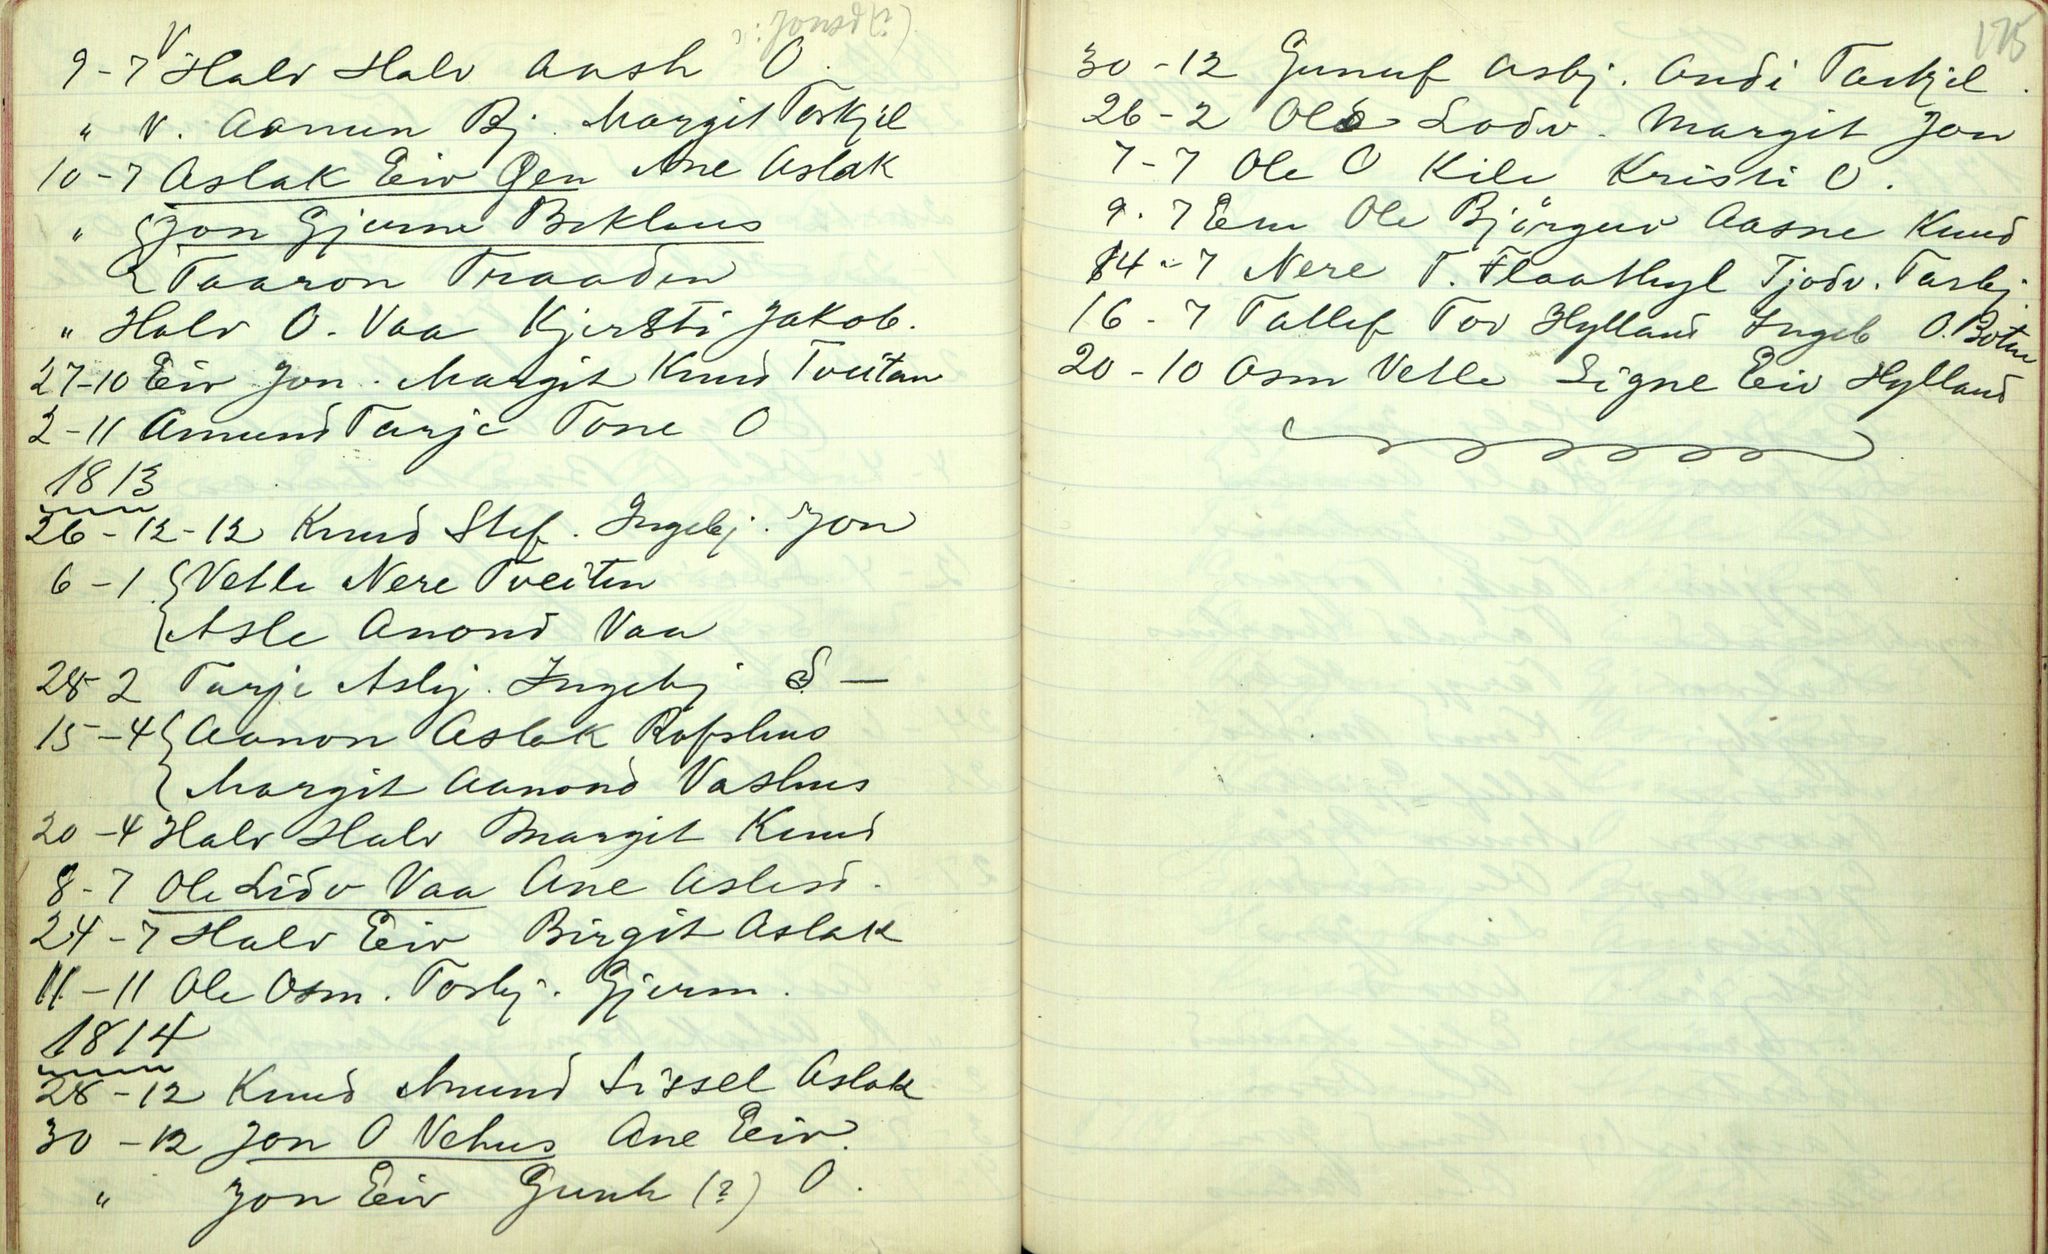 V
9-7 Halv Halv Aash O.
" V. Aamun Bj. Margit Torkjil
10-7 Aslak Eiv Gen Ane Aslak
" Jon Gjerme Beklaus
Taaron Traaden
" Halv O. Vaa Kjersti Jakob.
27-10 Eiv Jon. Margit Knud Tveitan
2-11 Amund Tarje Tone O
1813
26-12-12 Knud Stef. Ingebj. Jon
6-1 Vetle Nere Tveiten
Asle Anond Vaa
28-2 Tarje Asbj. Ingebj S. —
15-4 Aanon Aslak Rofshus
Margit Aanond Vashus
20-4 Halv Halv Margit Knud
8-7 Ole Lidv Vaa Ane Aslesd.
24-7 Halv Eiv Birgit Aslak
11-11 Ole Osm. Torbj. Gjerm.
1814
28-12 Knud Amund Sissel Aslak
30-12 Jon O Vehus Ane Eiv.
" Jon Eiv Gunh (?) O.
175
30-12 Gunuf Asbj. Andi Tarkjel.
26-2 Ole Lodv. Margit Jon
7-7 Ole O Kile Kristi O.
9.7 Em Ole Björguv Aasne Knud
14-7 Nere T. Flaathyl Tjodv. Tarbj.
16-7 Tallef Tov Hylland Ingeb O. Boten
20-10 Osm Vetle Signe Eiv Hylland